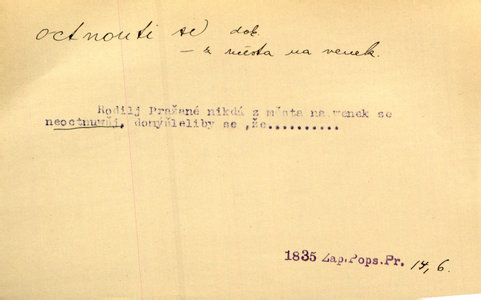 octnouti se dok.
– z města na venek.
Rodilj Pražané nikdá z města na venek se
neoctnuwěj, domýšleliby se ,že..........
1835 Zap.Pops.Pr. 14, 6.